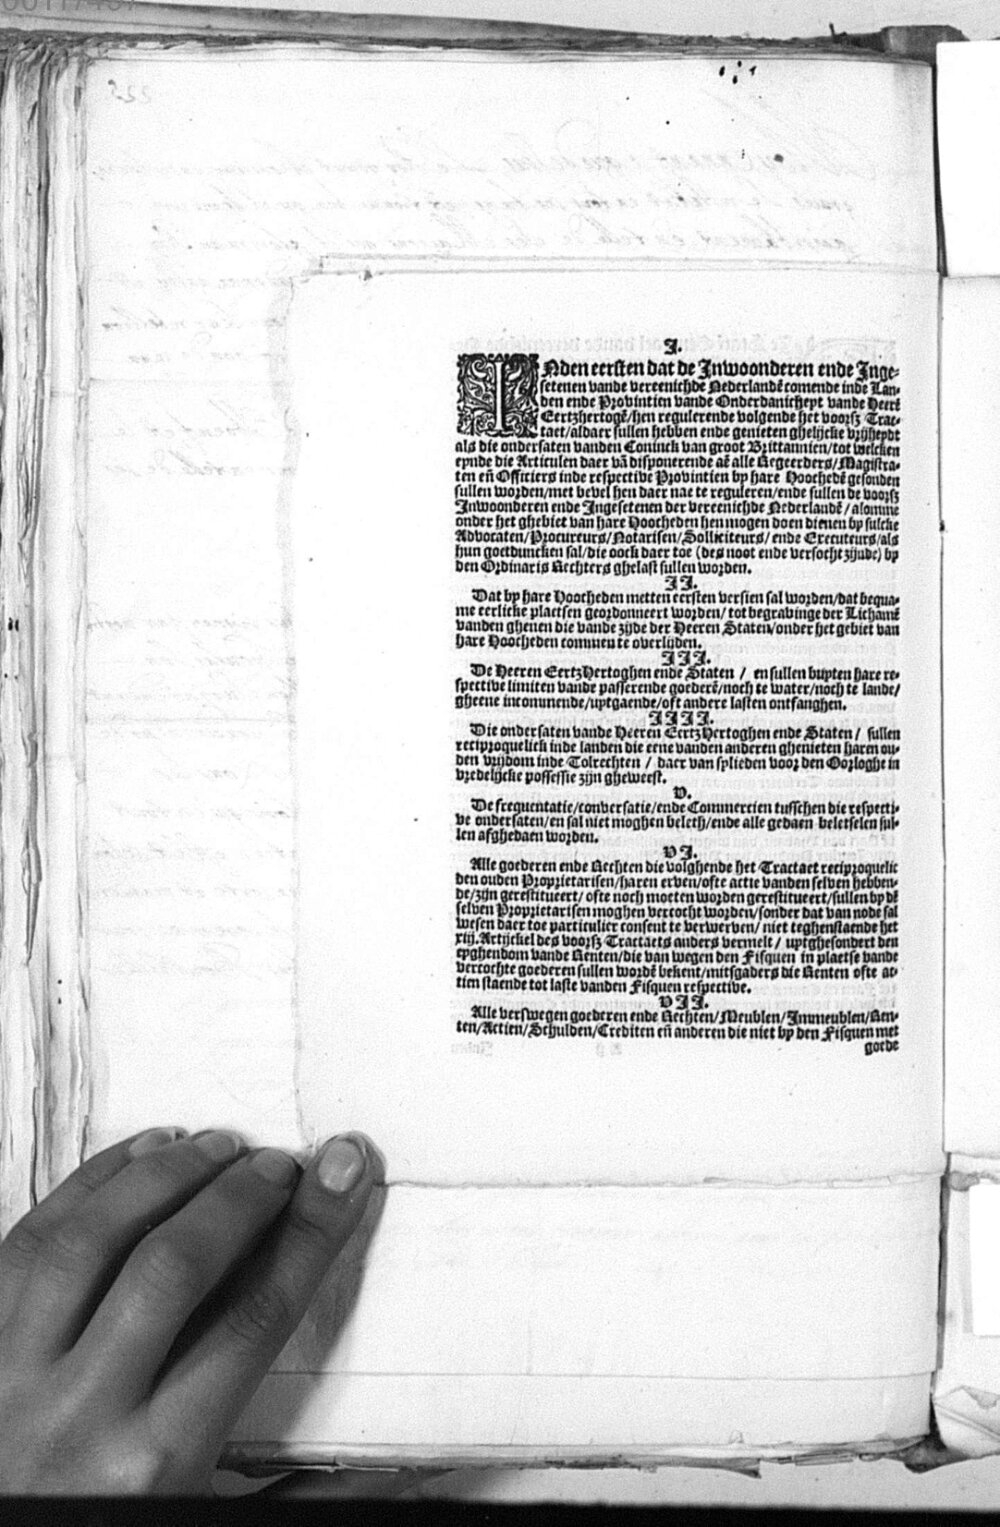 I.
INden eersten dat de Inwoonderen ende Inge-
setenen vande vereenichde Nederlandē comende inde Lan-
den ende Provintien vande Onderdanicheyt vande Heerē
Eertzhertogē/hen regulerende volgende het voorsz Trac-
taet/aldaer sullen hebben ende genieten ghelijcke vrijheydt
als die ondersaten vanden Coninck van groot Brittannien/tot welcken
eynde die Articulen daer vā disponerende aē alle Regeerders/Magistra-
ten eñ Officiers inde respective Provintien by hare Hoochedē gesonden
sullen worden/met bevel hen daer nae te reguleren/ende sullen de voorsz
Inwoonderen ende Ingesetenen der vereenichde Nederlandē/alomme
onder het ghebiet van hare Hoocheden hen mogen doen dienen by sulcke
Advocaten/Procureurs/Notarisen/Solliciteurs/ende Executeurs/als
hun goetduncken sal/die oock daer toe (des noot ende versocht zijnde) by
den Ordinaris Rechters ghelast sullen worden.
II.
Dat by hare Hoocheden metten eersten versien sal worden/dat bequa-
me eerlicke plaetsen geordonneert worden/tot begravinge der Lichamē
vanden ghenen die vande zijde der Heeren Staten/onder het gebiet van
hare Hoocheden commen te overlijden.
III.
De Heeren EertzHertoghen ende Staten / en sullen buyten hare re-
spective limiten vande passerende goederē/noch te water/noch te lande/
gheene incommende/uytgaende/oft andere lasten ontfanghen.
IIII.
Die ondersaten vande Heeren EertzHertoghen ende Staten / sullen
reciproquelick inde landen die eene vanden anderen ghenieten haren ou-
den vrijdom inde Tolrechten / daer van sylieden voor den Oorloghe in
vredelijcke possessie zijn gheweest.
V.
De frequentatie/conversatie/ende Commercien tusschen die respecti-
ve ondersaten/en sal niet moghen beleth/ende alle gedaen beletselen sul-
len afghedaen worden.
VI.
Alle goederen ende Rechten die volghende het Tractaet reciproquelic
den ouden Proprietarisen/haren erven/ofte actie vanden selven hebben-
de/zijn gerestitueert/ofte noch moeten worden gerestitueert/sullen by dē
selven Proprietarisen moghen vercocht worden/sonder dat van node sal
wesen daer toe particulier consent te verwerven/ niet teghenstaende het
xiij. Artijckel des voorsz Tractaets anders vermelt / uytghesondert den
eyghendom vande Renten/die van wegen den Fisquen in plaetse vande
vercochte goederen sullen wordē bekent/mitsgaders die Renten ofte ac-
tien staende tot laste vanden Fisquen respective.
VII.
Alle verswegen goederen ende Rechten/Meublen/Immeublen/Ren-
ten/Actien/Schulden/Crediten eñ anderen die niet by den Fisquen met
goede